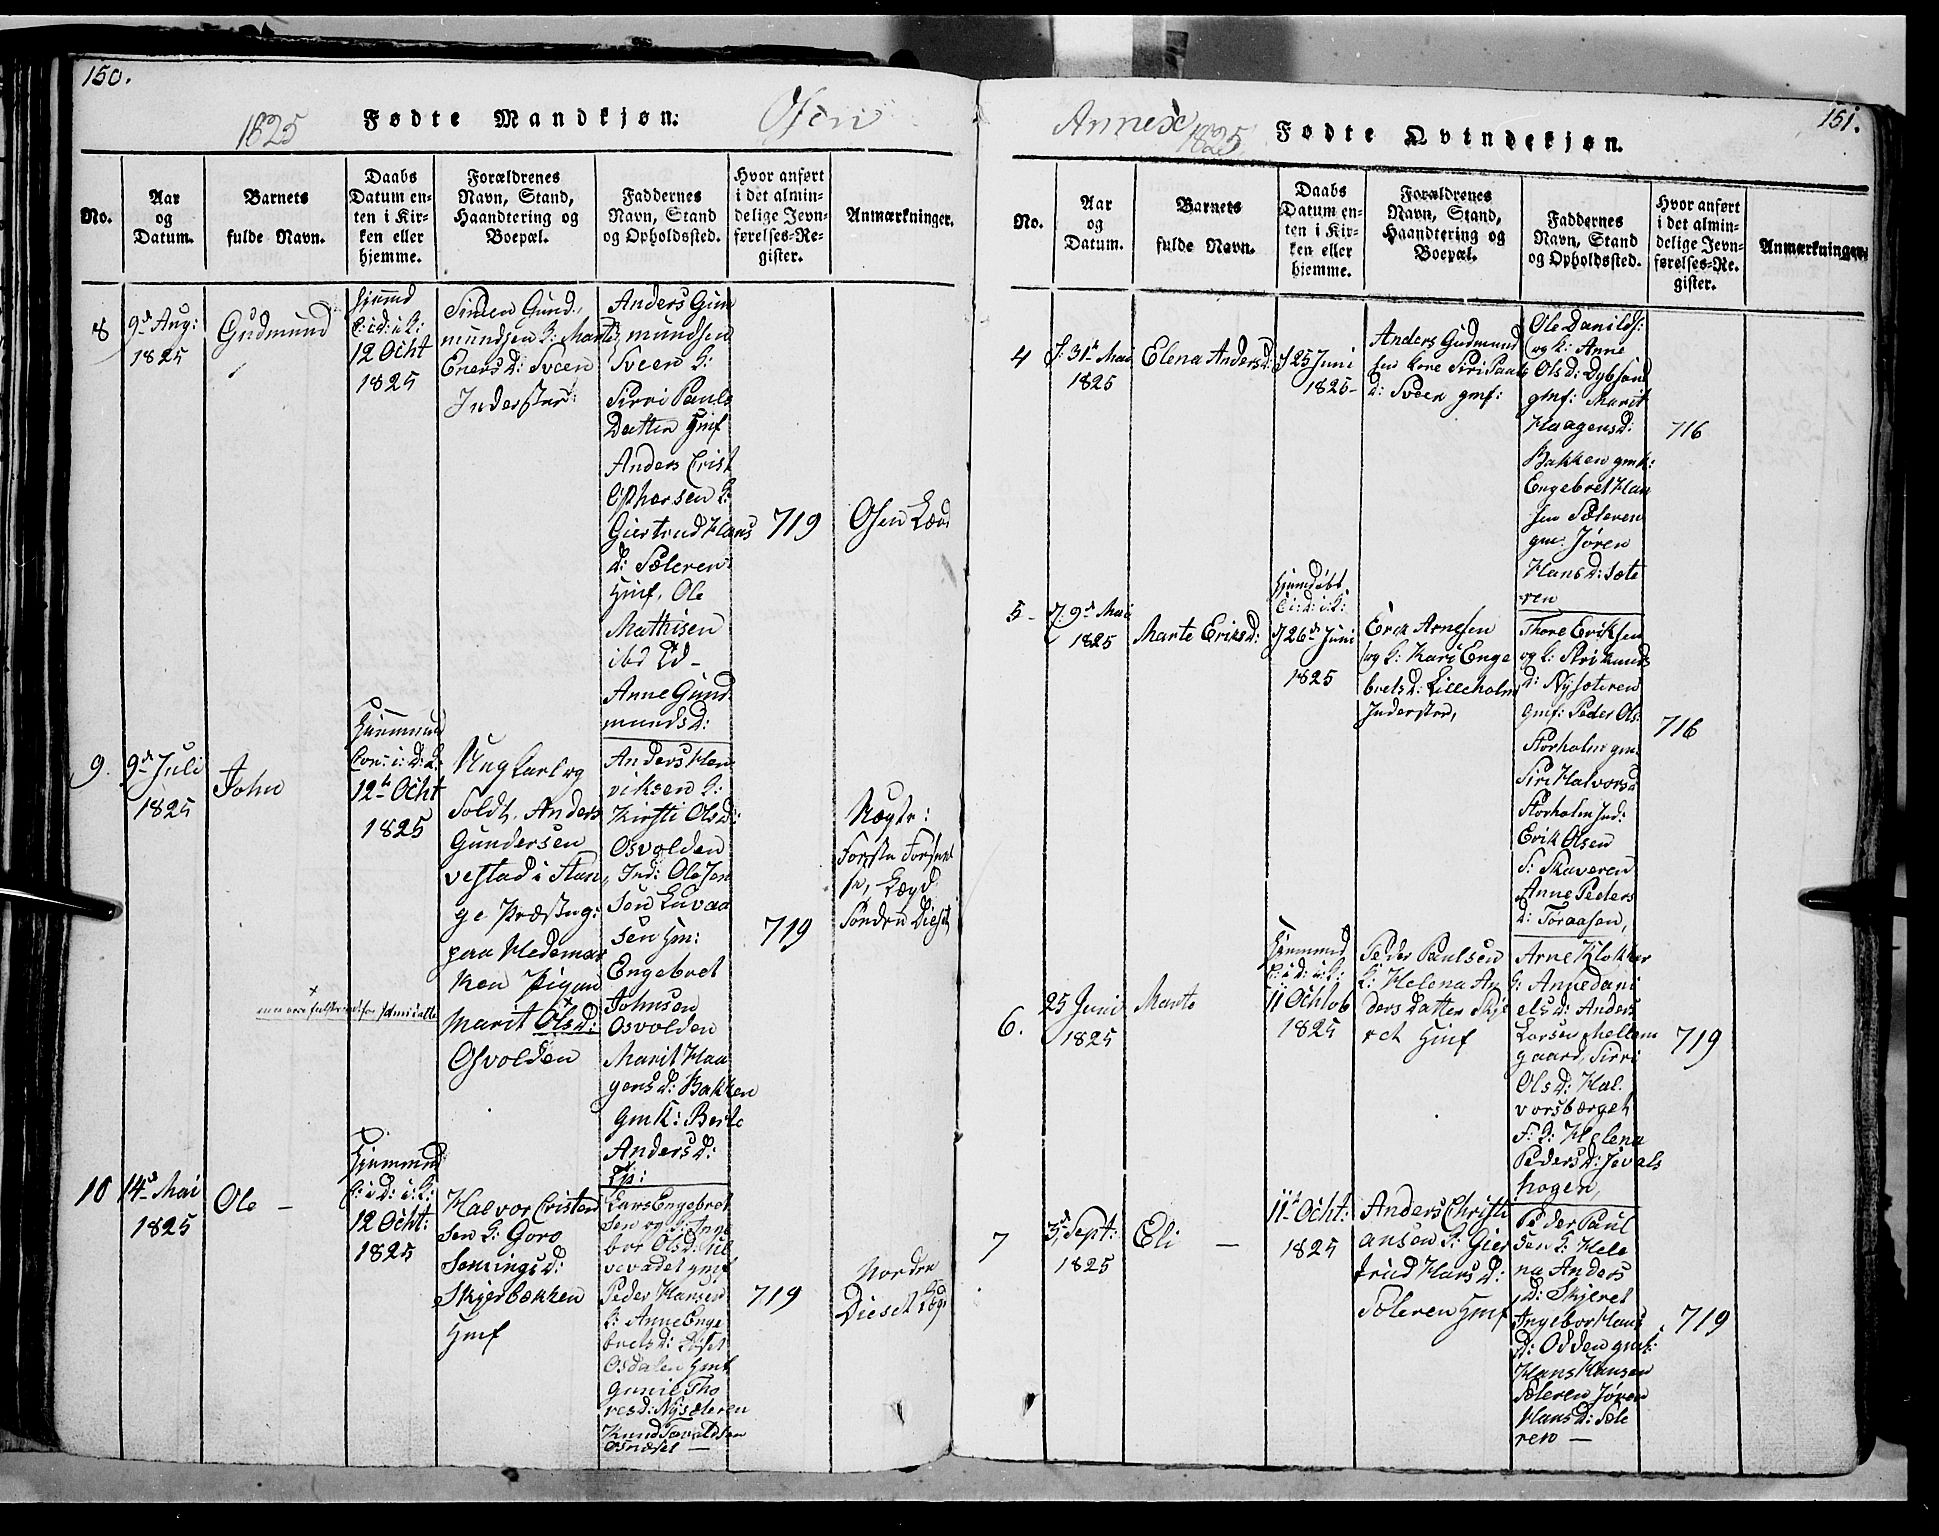 150.
1825
Fødte Mandkjøn:
Osen
No.
Aar
og
Datum.
Barnets
fulde Navn.
Daabs
Datum en-
ten i Kir-
ken eller
hjemme.
Forældrenes
Navn, Stand,
Haandtering og
Boepæl.
Faddernes
Navn, Stand
og Opholdssted.
Hvor anført
i det almin-
delige Jevn-
førelses-Re-
gister.
Anmærkninger.
8
9d Aug:
1825
Gudmund
12 Ocht
1825
Simen Gund
mundsen K: Marte
Enersd: Sveen
Inderstør:
Anders Gun
mundsen
Sveen K:
Sirri Pauls
Datter Gmf
Anders Crist
ophersen K:
Giertrud Hans
d: Sæteren
Gmf, Ole
Mathisen
ibd
Anne Gund
mundsd:
719
Osen Læd
9.
9de Juli
1825
John
12te Ocht
1825
Ung Karl og
Soldt. Anders
Gundersen
vestad i Stan
ge Præstug:
paa Hedemar
ken Pigen
Marit Olsd:
Osvolden
Anders Hen
riksen K:
Kirsti Olsd:
Osvolden
Ind: Ole Jon
sen Luvaa
sen Gm:
Engebret
Johnsen
Osvolden
Marit Haa
gensd: Bakken
GmK: Berte
Andersd:
719
Nægte:
Lægd
Sønden Diset
10
14de Mai
1825
Ole —
12 Ocht:
1825
Halvor Cristen
sen K: Goro
Semingsd:
Skjerbækken
Gmf
Lars Engebret
sen og K: Inge
bor Olsd: Ul
vevadet gmf
Peder Hansen
K: Anne Enge
bretsd: Løset
Osdalen Gmf
Gunil Tho
resd: Nysæteren
Knud Tovaldsen
Osnæset —
719
Norden
Dieset Læg
Annex
1825
Fødte Qvindekjøn.
151.
No.
Aar
og
Datum.
Barnets
fulde Navn.
Daabs
Datum en-
ten i Kir-
ken eller
hjemme.
Forældrenes
Navn, Stand,
Haandtering og
Boepæl.
Faddernes
Navn, Stand
og Opholdssted.
Hvor anført
i det almin-
delige Jevn-
førelses-Re-
gister.
Anmærkninger.
4
31te Mai
1825
Elena Andersd:
25 Juni
1825-
Anders Gudmund
sen Kone Siri Pauls
d: Sveen gmf:
Ole Daniels:
og K: Anne
Olsd: Dybsand
gmf: Marit
Haagensd:
Bakken gmk:
Engebret Han
sen Sæteren
gm. Jøren
Hansd: Sæte
ren
716
5-
9de Mai
1825
Marte Eriksd:
26de Juni
1825
Erik Arnesen
og K: Kari Enge
bretsd: Lilleholm
Inderstør,
Thore Eriksen
og K: Siri Knuds
d: Nysæteren
gmf: Peder Ols:
Storholm gm:
Siri Halvorsd
Storholm Ind:
Erik Olsen
S: Skaveren
Anne Peders
d: Toraasen,
716
6.
25 Juni
1825
Marte
11 Ochtob
1825
Peder Paulsen
K: Helena An
ders Datter Skje
ret Gmf
Arne Klokker
K: Anne Dani
elsd: Anders
Larsen Mellem
gaard, Sirri
Olsd: Hal.
vorsbærget
F: K: Helena
Pedersd: Jevals
hogen,
719
7
3de Sept:
1825
Eli —
11te Ocht:
1825
Anders Christi
ansen K: Gier
trud Hansd:
Sæteren Gmf
Peder Paul
sen K: Hele
na Anders
d: Skjeret
Ingebor Hans
d: Odden gmk:
Hans Hansen
Sæteren Jøren
Hansd: Sæte
ren —
719